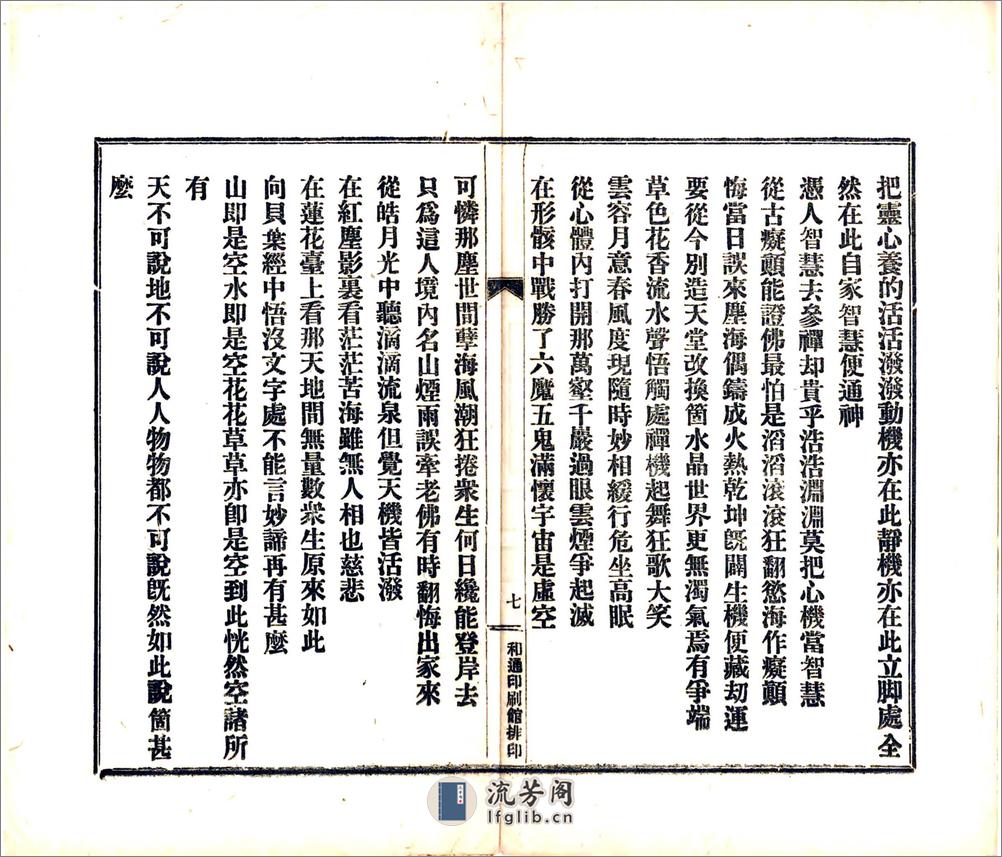 把靈心養的活活潑潑動機亦在此靜機亦在此立脚處全
然在此自家智慧便通神
憑人智慧去參禪却貴乎浩浩淵淵莫把心機當智慧
從古癡顚能證佛最怕是滔滔滾滾狂翻慾海作癡顚
悔當日誤來塵海偶鑄成火熱乾坤旣闢生機便藏劫運
要從今別造天堂改換箇水晶世界更無濁氣焉有爭端
草色花香流水聲悟觸處禪機起舞狂歌大笑
雲容月意春風度現隨時妙相緩行危坐高眠
從心體內打開那萬壑千巖過眼雲煙爭起滅
在形骸中戰勝了六魔五鬼滿懷宇宙是虛空
七
和通印刷館排印
可憐那塵世間孽海風潮狂捲衆生何日纔能登岸去
只爲這人境內名山煙雨誤牽老佛有時翻悔出家來
從皓月光中聽滴滴流泉但覺天機皆活潑
在紅塵影裏看茫茫苦海雖無人相也慈悲
在蓮花臺上看那天地間無量數衆生原來如此
向貝葉經中悟沒文字處不能言妙諦再有甚麼
山即是空水即是空花花草草亦卽是空到此恍然空諸所
有
天不可說地不可說人人物物都不可說旣然如此說箇甚
麼
流芳阁
lfglib.cn